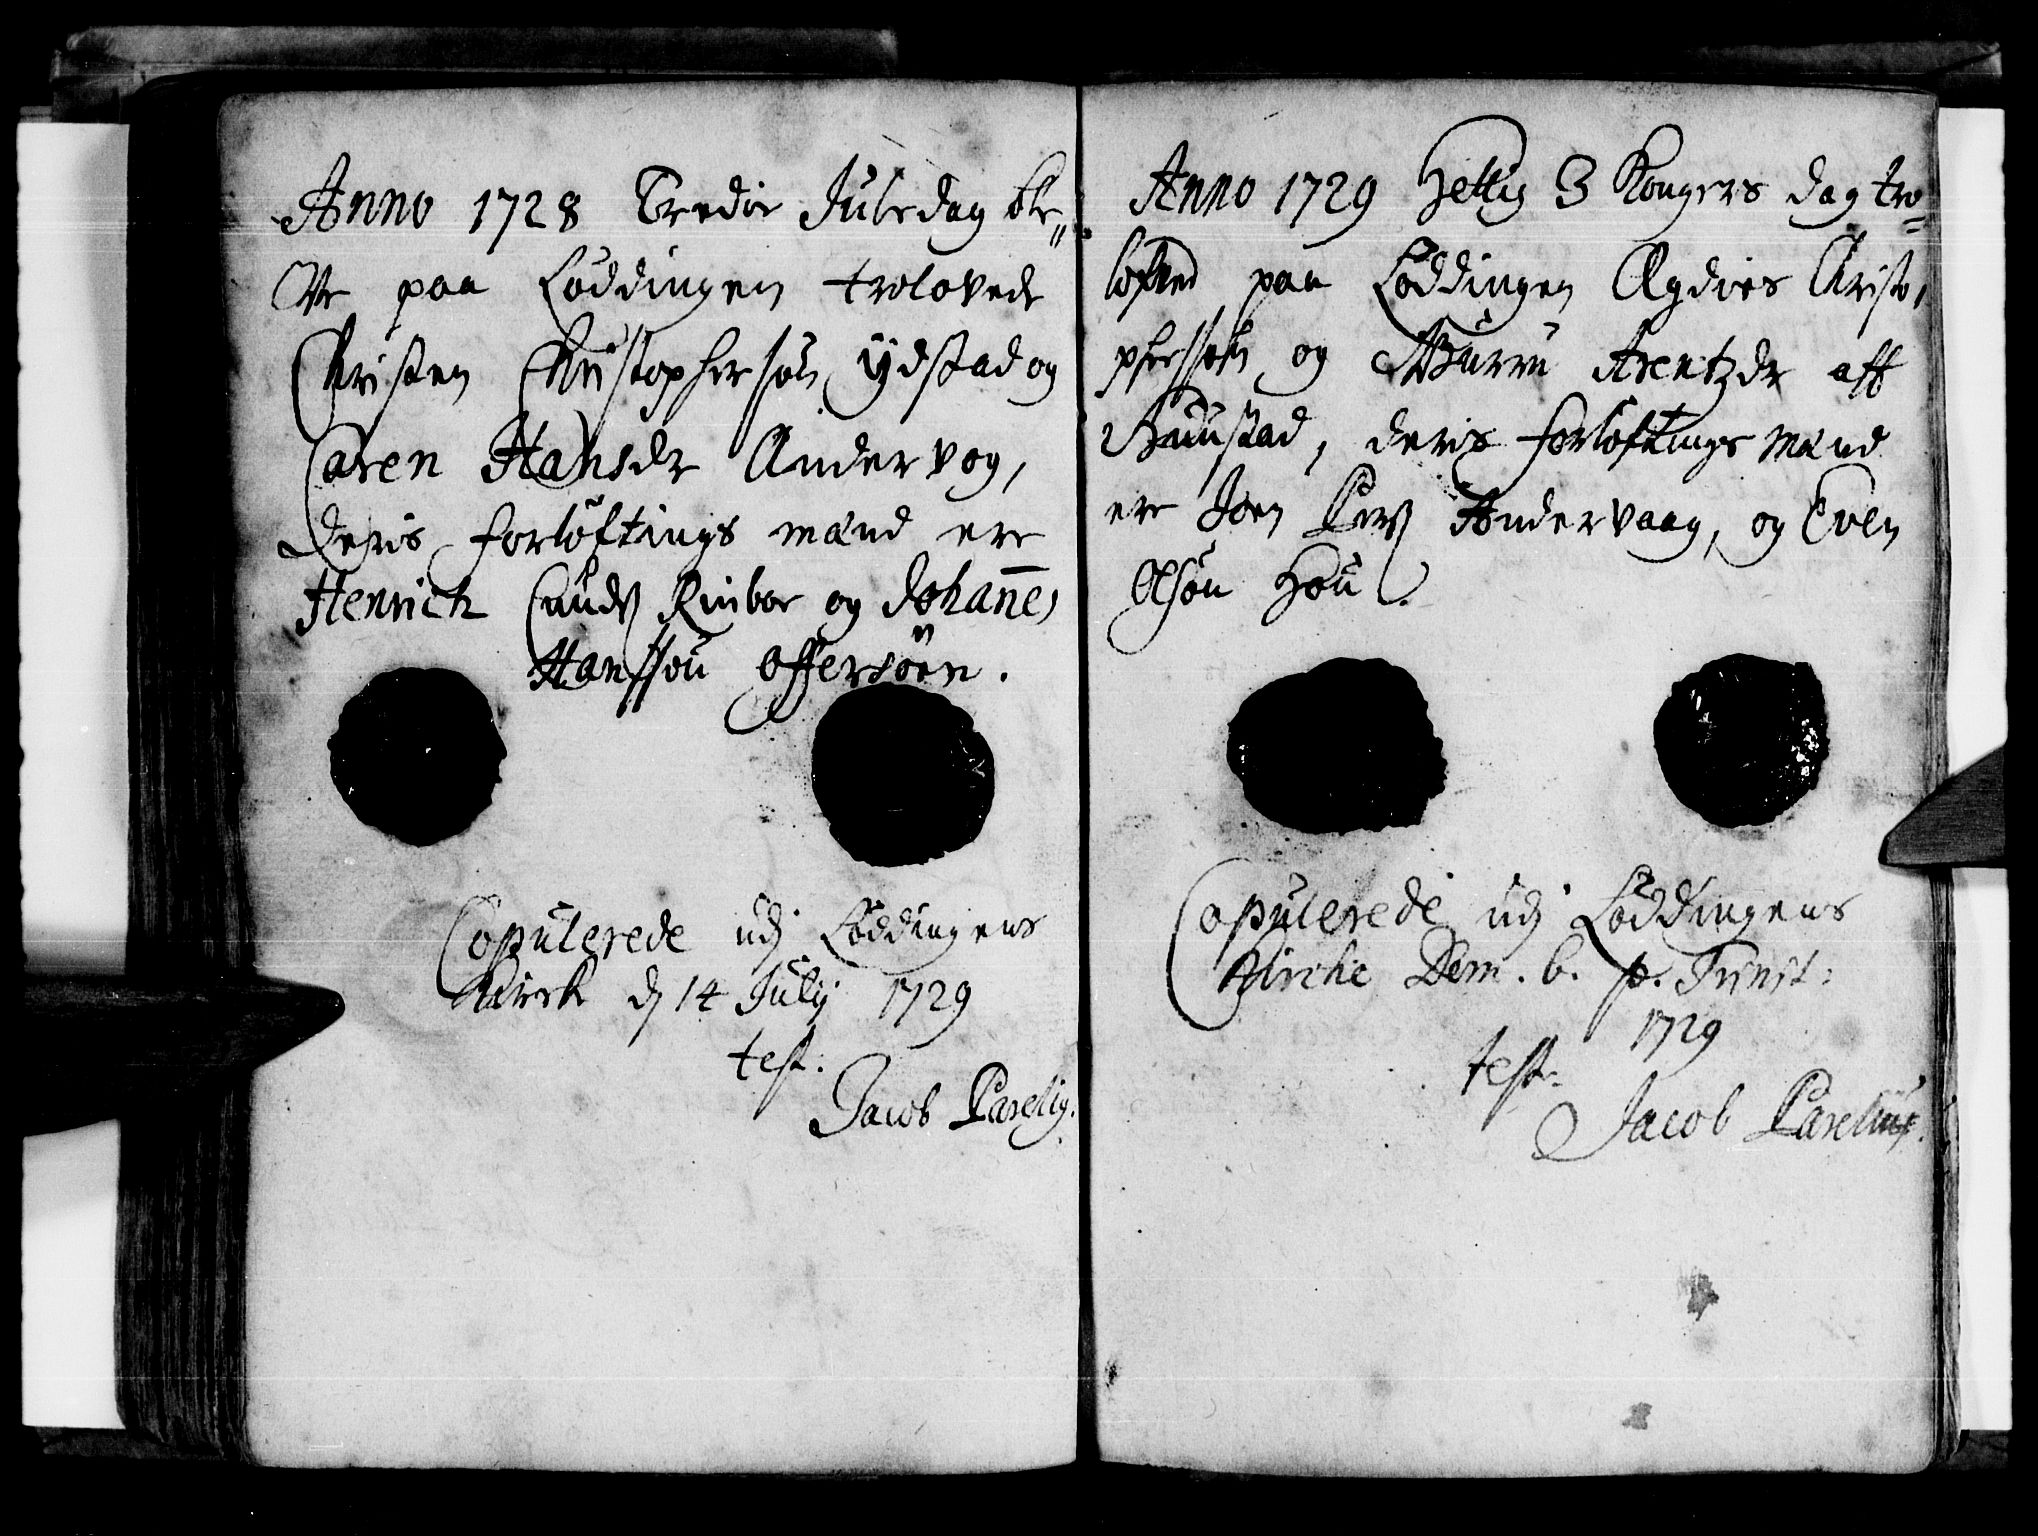 Anno 1728 Tredie Juledag ble„
Ve paa Løddingen trolovede
Christen Christophersøn ÿdstad og
Caren Hansdr Andervog,
deris forløftings mænd ere
Henrich Knudß Rinbøe og Johañes
Hanssøn Offersöen.
Copulerede udj Løddingens
Kirck d 14 Julÿ 1729
test.
Jacob Parelig.
Anno 1729 Hellig 3 Kongers dag tro=
lofved paa Løddingen Ægdies Christo,
phersøn og Arentzdr aff
deris forløftings Mænd
ere Joen Perß Andervaag, og Even
Olsøn Hou.
Copulerede udj Løddingens
Kirche Dom. 6. p. Trinit:
1729
test.
Jacob Parelius.